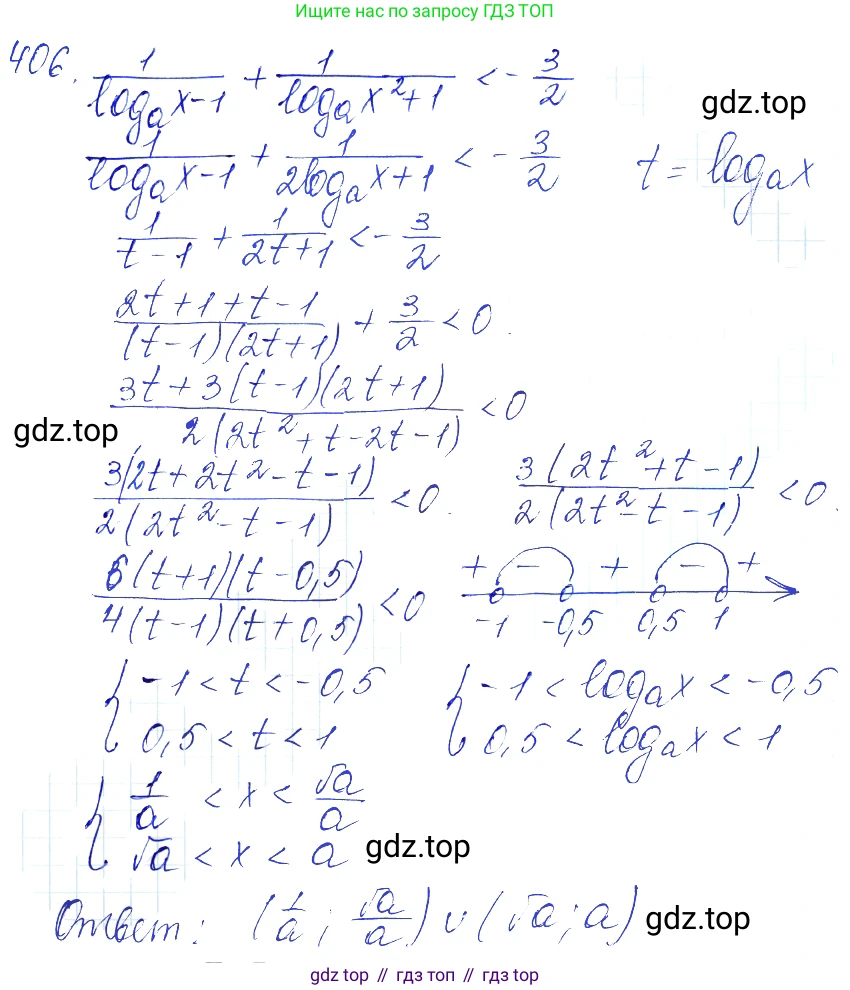 Ищите нас по запросу ГДЗ ТОП
406. 1/(log_a x-1) + 1/(log_a x²+1) < - 3/2
gdz.top
1/(log_a x-1) + 1/(2log_a x+1) < - 3/2 t = log_a x
1/(t-1) + 1/(2t+1) < - 3/2
(2t+1+t-1)/((t-1)(2t+1)) + 3/2 < 0.
(3t+3(t-1)(2t+1))/(2(2t²+t-2t-1)) < 0
gdz.top
3(2t+2t²-t-1)/(2(2t²-t-1)) < 0. 3(2t²+t-1)/(2(2t²-t-1)) < 0.
6(t+1)(t-0,5)/(4(t-1)(t+0,5)) < 0
+ - + - +
-1 -0,5 0,5 1
{ -1 < t < -0,5 { -1 < log_a x < -0,5
0,5 < t < 1 0,5 < log_a x < 1
{ 1/a < x < √a/a
√a < x < a
gdz.top
Ответ: (1/a ; √a/a) ∪ (√a ; a)
gdz.top
gdz top // гдз топ // гдз top